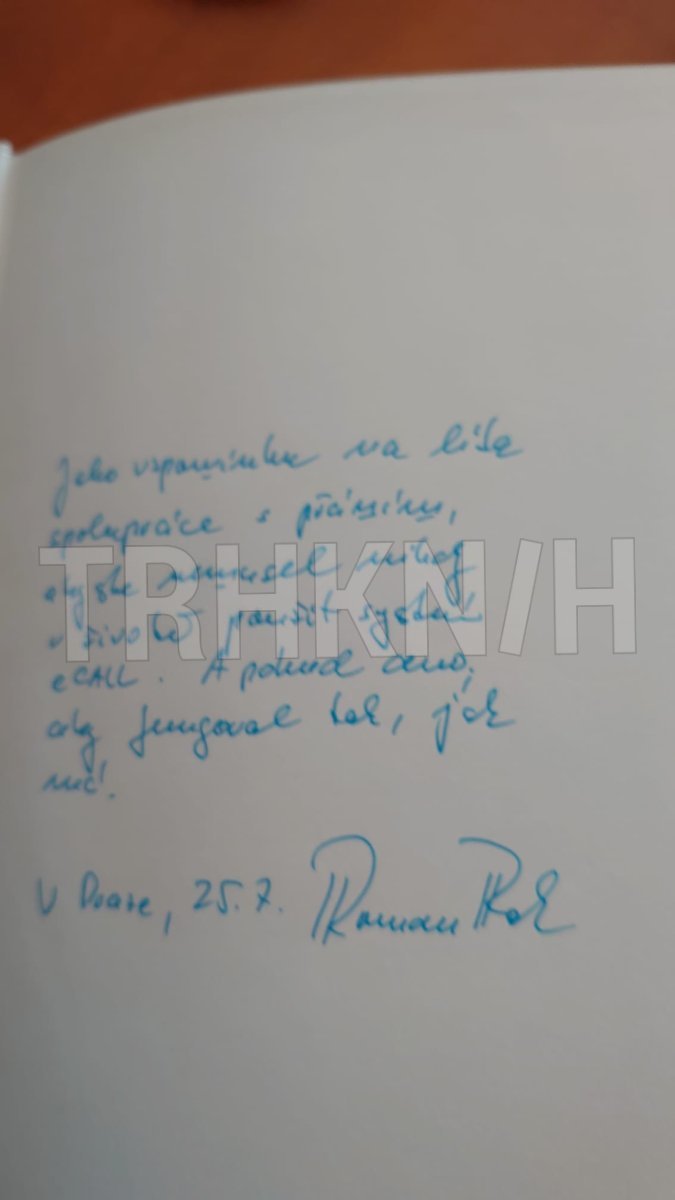 Jako vzpomínku na
spolupráce s přáním,
aby nemusel nikdy
v životě použít systém
eCALL. A pokud ano,
aby fungoval tak, jak
má!
V Praze, 25.7. Roman
TRHKN/H